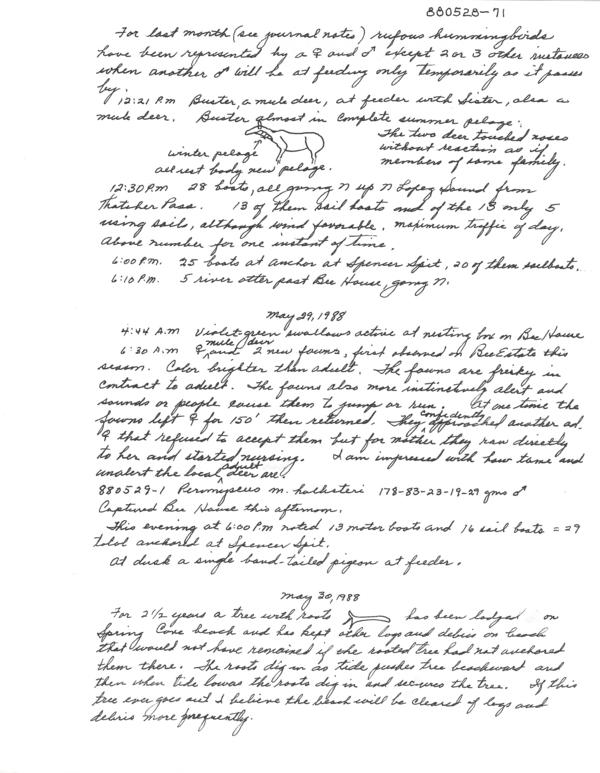 880528-71
For last month (see journal notes) rufous hummingbirds
have been represented by a ♀ and ♂ except 2 or 3 other instances
when another ♂ will be at feeding only temporarily as it passes
by.
12:21 P.m Buster, a mule deer, at feeder with Sister, also a
mule deer. Buster almost in complete summer pelage.
The two deer touched noses
without reaction as if
members of same family.
winter pelage
all rest body new pelage.
12:30 P.m 28 boats, all going N up N Lopez Sound from
Thatcher Pass. 13 of them sail boats and of the 13 only 5
using sails, although wind favorable. maximum traffic of day.
Above number for one instant of time.
6:00 P.m. 25 boats at anchor at Spencer Spit, 20 of them sailboats.
6:10 P.m. 5 river otter past Bee House, going N.
May 29, 1988
4:44 A.m Violet-green swallows active at nesting box on Bee House
6:30 A.m ♀ mule deer and 2 new fawns, first observed on Bee Estate this
season. Color brighter than adult. The fawns are friskey in
contract to adult. The fawns also more instinctively alert and
sounds or people cause them to jump or run. At one time the
fawns left ♀ for 150' then returned. They confidently approached another ad.
♀ that refused to accept them but for mother they ran directly
to her and started nursing. I am impressed with how tame and
unalert the local adult deer are.
880529-1 Peromyscus m. hollisteri 178-83-23-19-29 gms ♂
Captured Bee House this afternoon.
This evening at 6:00 P.m noted 13 motor boats and 16 sail boats = 29
total anchored at Spencer Spit.
At dusk a single band-tailed pigeon at feeder.
May 30, 1988
For 2½ years a tree with roots has been lodged on
Spring Cove beach and has kept other logs and debris on beach
that would not have remained if the rooted tree had not anchored
them there. The roots dig in as tide pushes tree beachward and
then when tide lowers the roots dig in and secures the tree. If this
tree ever goes out I believe the beach will be cleared of logs and
debris more frequently.